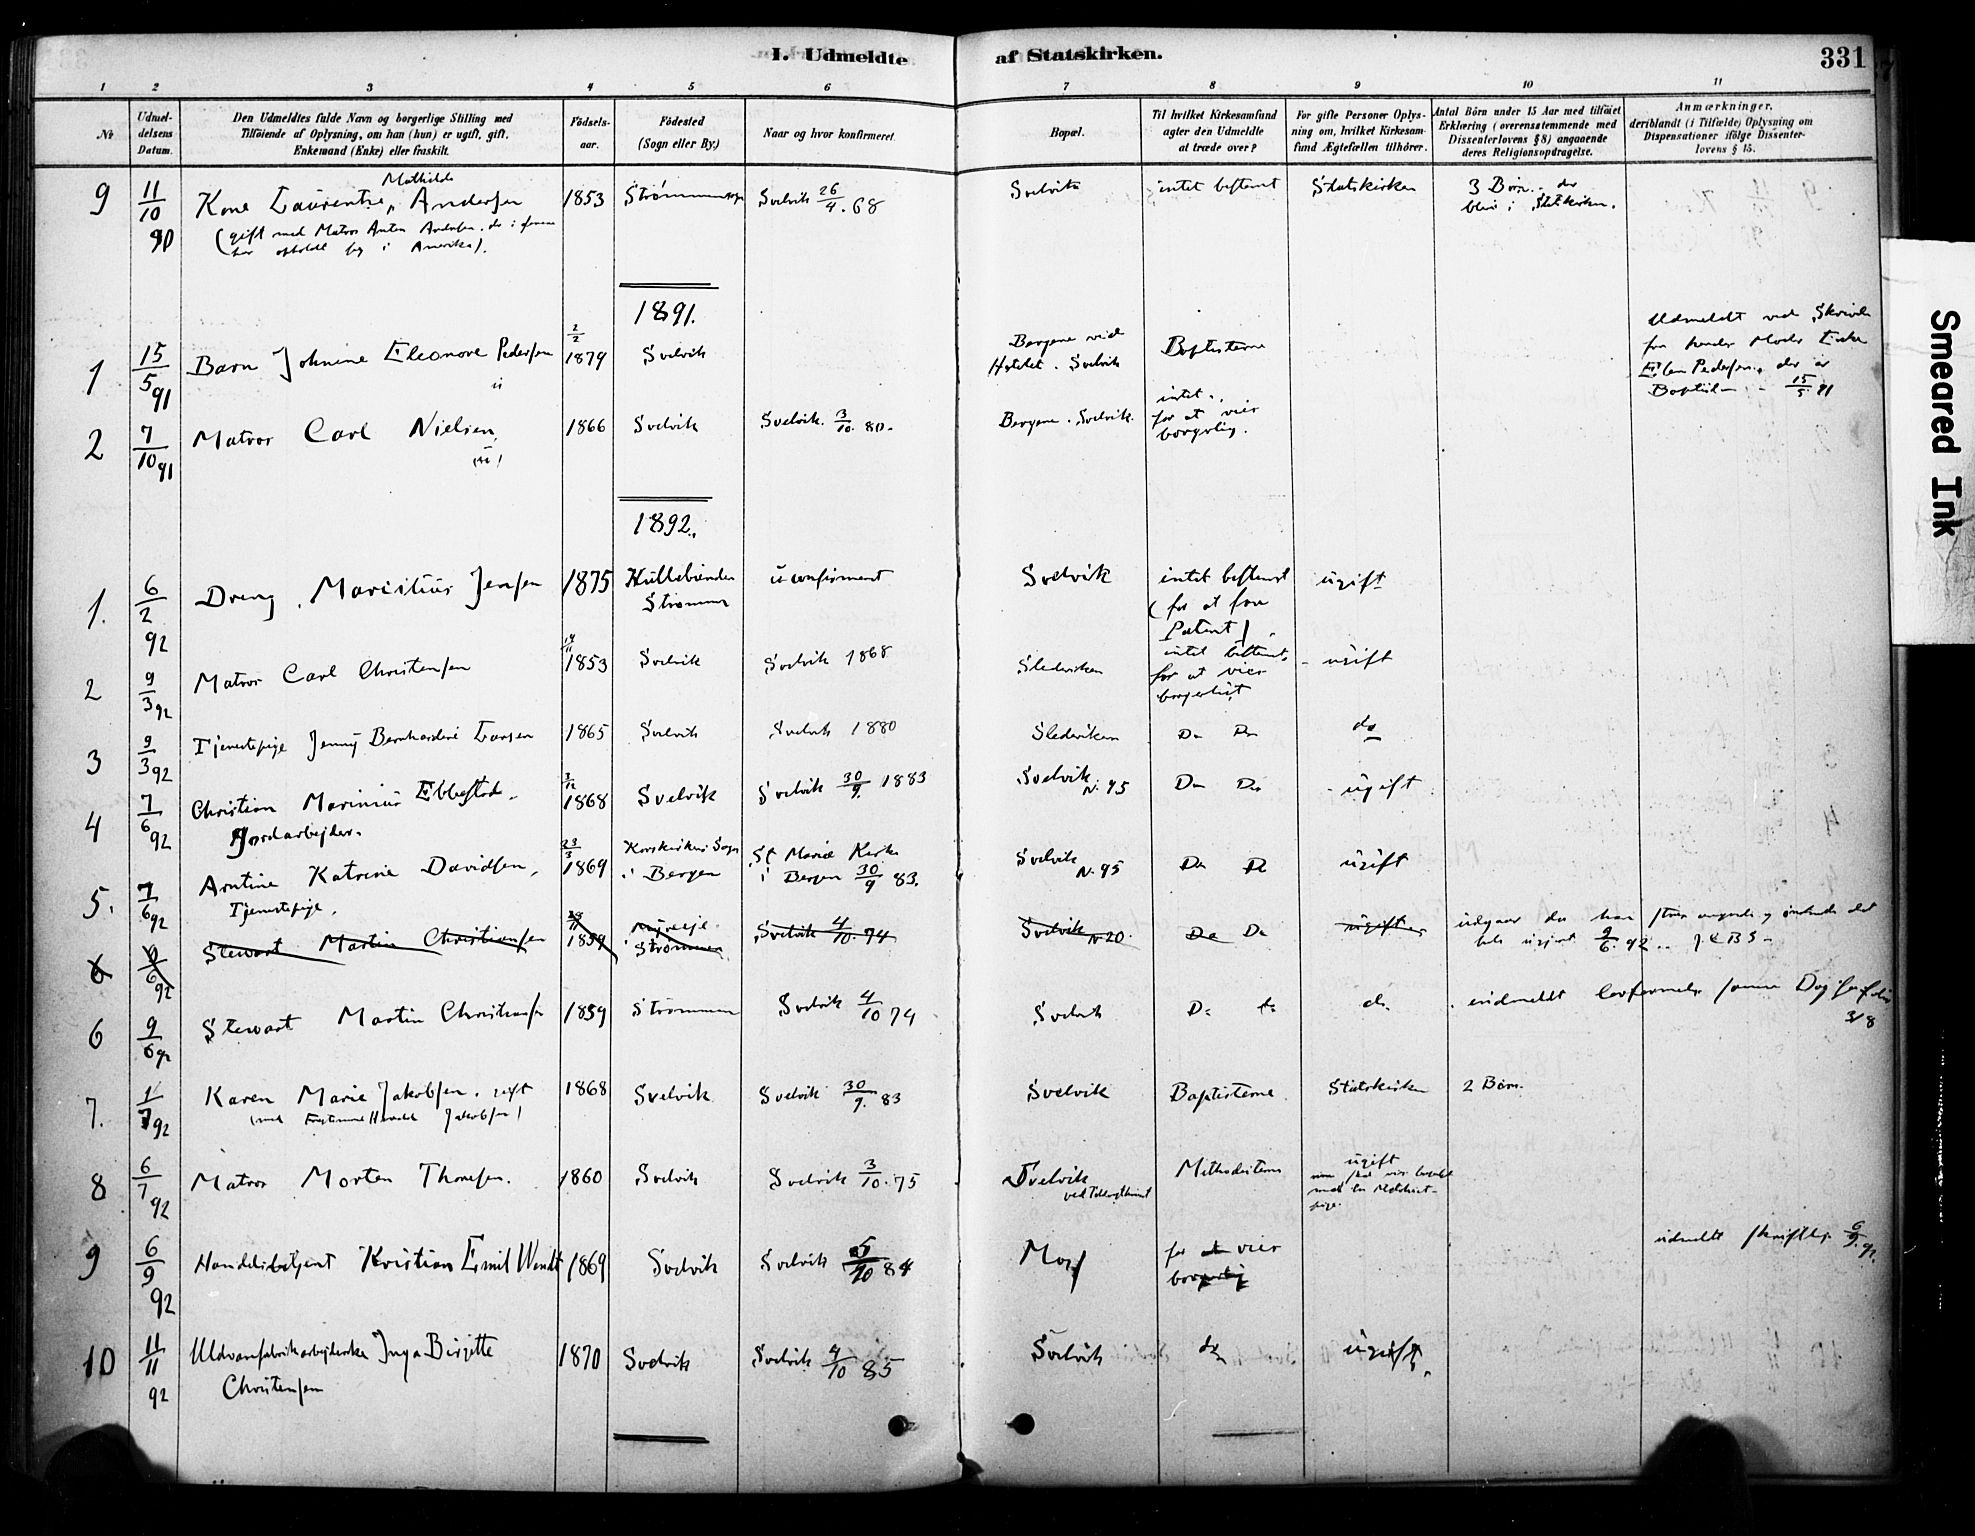 I. Udmeldte af Statskirken.
331
1 2 3 4 5 6 7 8 9 10 11
No
Udmel-
delsens
Datum.
Den Udmeldtes fulde Navn og borgerlige Stilling med
Tilføiende af Oplysning, om han (hun) er ugift, gift,
Enkemand (Enke) eller fraskilt.
Fødsels-
aar.
Fødested
(Sogn eller By.)
Naar og hvor konfirmeret.
Bopæl.
Til hvilket Kirkesamfund
agter den Udmeldte
at træde over?
For gifte Personer Oplys-
ning om, hvilket Kirkesam-
fund Ægtefællen tilhører.
Antal Børn under 15 Aar med tilføiet
Erklæring (overensstemmende med
Dissenterlovens § 8) angaaende
deres Religionsopdragelse.
Anmærkninger,
deriblandt (i Tilfælde) Oplysning om
Dispensationer ifølge Dissenter-
lovens § 15.
9 11/10 90 Kone Laurentze Mathilde Andersen 1853 Svelvik 26/4. 68 Svelvik intet bestemt Statskirken 3 Børn der
blive i Statskirken.
(gift med Matros Anton Andersen, der i
har opholdt sig i Amerika).
1891.
1 15/5 91 Barn Johnine Eleonore Pedersen 2/2 1879 Svelvik Bergene ved
Hotelet. Svelvik Baptisterne
Udmeldt ved
for hendes Moder Enke
Elen Pedersen, der er
Baptist 15/5 91
2 7/10 91 Matros Carl Nielsen 1866 Svelvik Svelvik 3/10. 80. Bergene. Svelvik. intet.
for at vies
borgerlig.
1892.
1. 6/2 92 Dreng, Maristius Jensen 1875 Strømmen uconfirmert Svelvik intet bestemt
(for at faa
Patent) ugift
2 9/3 92 Matros Carl Christensen 1853 Svelvik Svelvik 1868 Sledeviken intet bestemt,
for at vies
borgerligt ugift
3 9/3 92 Tjenestepige Jenny Bernhardine Larsen 1865 Svelvik Svelvik 1880 Sledeviken Do Do do
4 7/6 92 Christian Marinius Ebbestad. 1868 Svelvik Svelvik 30/9. 1883 Svelvik
N. 95 Do Do ugift
Jordarbejder.
5. 7/6 92 Arntine Katrine Davidsen, 23/3 1869 Korskirkens Sogn
i Bergen St Mariæ Kirke
i Bergen 30/9 83. Svelvik
N. 95 Do Do ugift
Tjenestepige.
6 9/6 92 Stewart Martin Christiansen 1859 Strømmen Svelvik 4/10. 74 Svelvik N 20. Do Do ugift
9/6. 92
6 9/6 92 Stewart Martin Christiansen 1859 Strømmen Svelvik 4/10 74 Svelvik Do do do. indmeldt
3/8
7. 1/7 92 Karen Marie Jakobsen. gift 1868 Svelvik Svelvik 30/9. 83 Svelvik Baptisterne Statskirken 2 Børn.
8 6/7 92 Matros Morten Thoresen. 1860 Svelvik Svelvik 3/10. 75 Svelvik Methodisterne ugift
9 6/9 92 Handelsbetjent Kristian Emil Wendt 1869 Svelvik Svelvik 5/10 84 Moss for at vies
borgerlig udmeldt skriftlig. 6/9. 92
10 11/11 92 Uldvarefabrikarbejderske Inga Birgitte
Christensen 1870 Svelvik Svelvik 4/10 85 Svelvik do ugift.
Smeared Ink